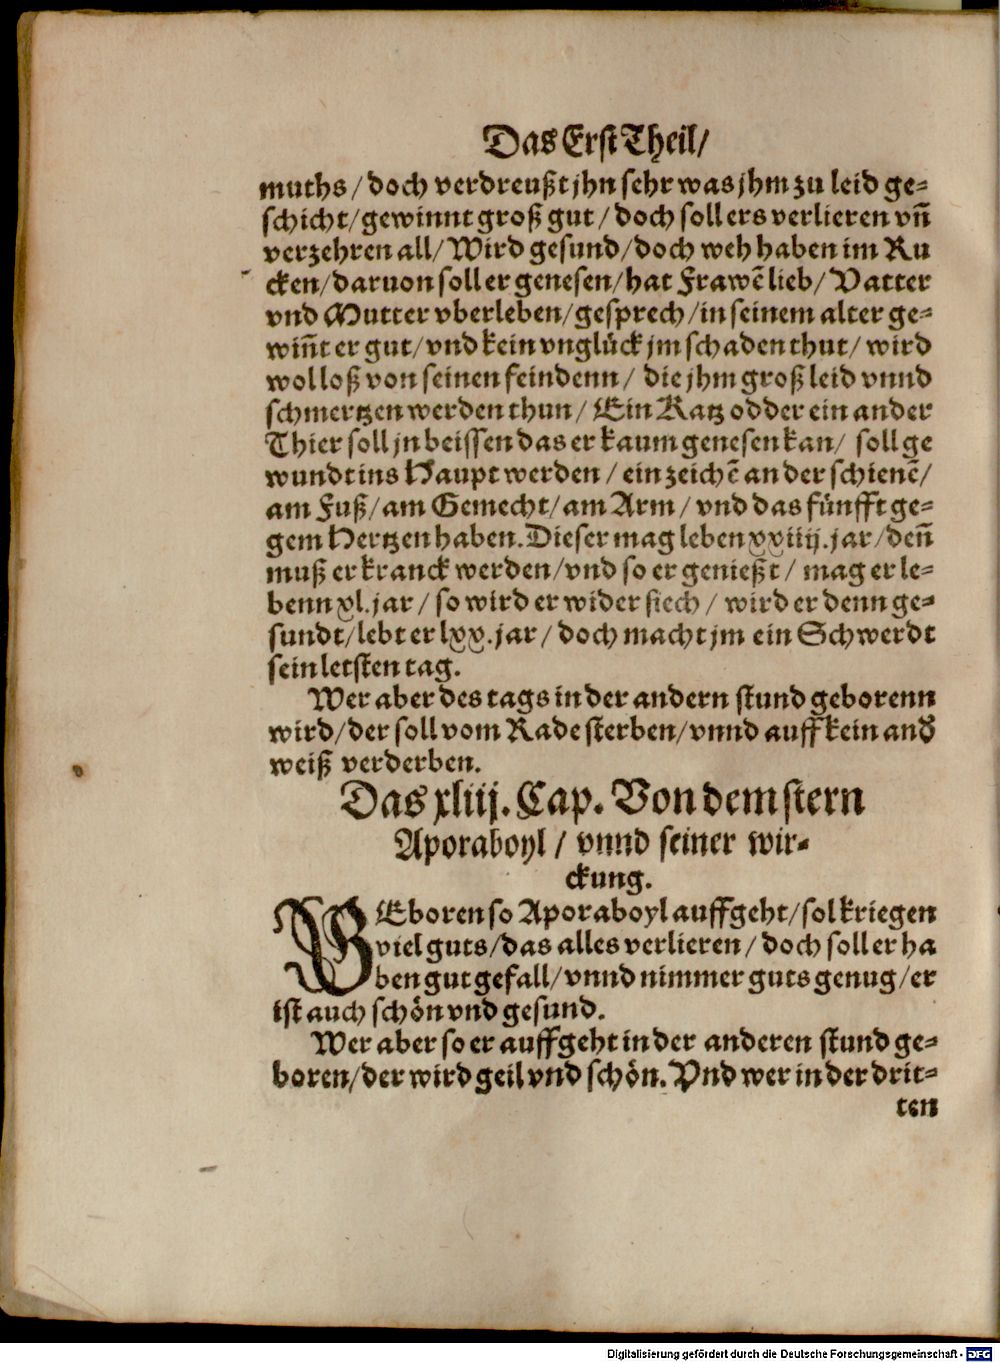 Das Erst Theil/
muths/ doch verdreußt jhn sehr was jhm zu leid ge-
schicht/ gewinnt groß gut/ doch soll ers verlieren vñ
verzehren all/ Wird gesund/ doch weh haben im Ru
cken/ daruon soll er genesen/ hat Frawẽ lieb/ Vatter
vnd Mutter vberleben/ gesprech/ in seinem alter ge-
wiñt er gut/ vnd kein vnglück jm schaden thut/ wird
wol loß von seinen feindenn/ die jhm groß leid vnnd
schmertzen werden thun/ Ein Katz odder ein ander
Thier soll jn beissen das er kaum genesen kan/ soll ge
wundt ins Haupt werden/ ein zeichẽ an der schienẽ/
am Fuß/ am Gemecht/ am Arm/ vnd das fünfft ge-
gem Hertzen haben. Dieser mag leben xxiiij. jar/ deñ
muß er kranck werden/ vnd so er genießt/ mag er le-
benn xl. jar/ so wird er wider siech/ wird er denn ge-
sundt/ lebt er lxx. jar/ doch macht jm ein Schwerdt
sein letsten tag.
Wer aber des tags in der andern stund geborenn
wird/ der soll vom Rade sterben/ vnnd auff kein and
weiß verderben.
Das xliij. Cap. Von dem stern
Aporaboyl/ vnnd seiner wir-
ckung.
GEboren so Aporaboyl auffgeht/ sol kriegen
viel guts/ das alles verlieren/ doch soll er ha
ben gut gefall/ vnnd nimmer guts genug/ er
ist auch schön vnd gesund.
Wer aber so er auffgeht in der anderen stund ge-
boren/ der wird geil vnd schön. Vnd wer in der drit-
ten
Digitalisierung gefördert durch die Deutsche Forschungsgemeinschaft - DFG